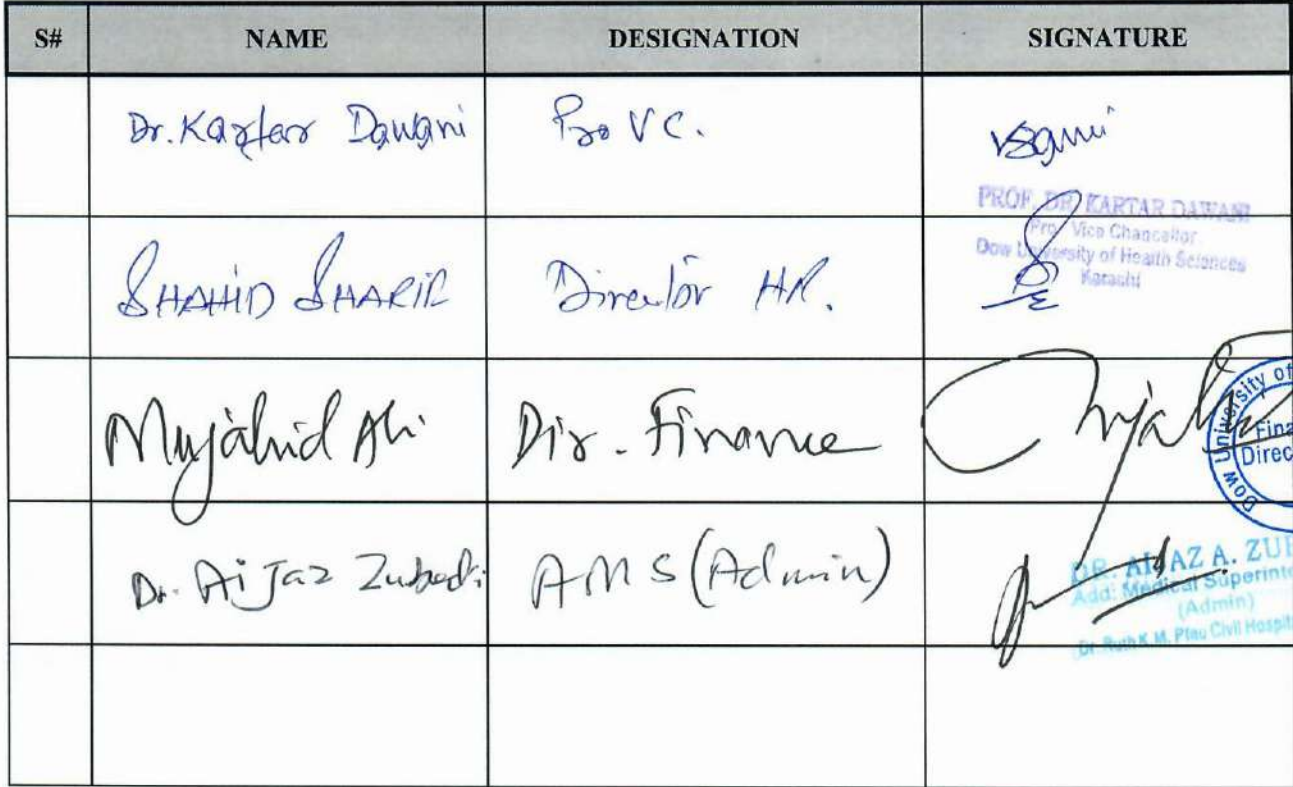 S# NAME DESIGNATION SIGNATURE
Dr. Kartar Dawani Pro VC.
PROF. DR. KARTAR DAWANI
Pro Vice Chancellor
Dow University of Health Sciences
Karachi
SHAHID SHARIF Director HR.
Mujahid Ali Dir. Finance
Dow University of
Fina
Direc
Dr. Aijaz Zubedi AMS (Admin)
DR. AIJAZ A. ZUB
Add: Medical Superinte
(Admin)
Dr. Ruth K.M. Pfau Civil Hospit